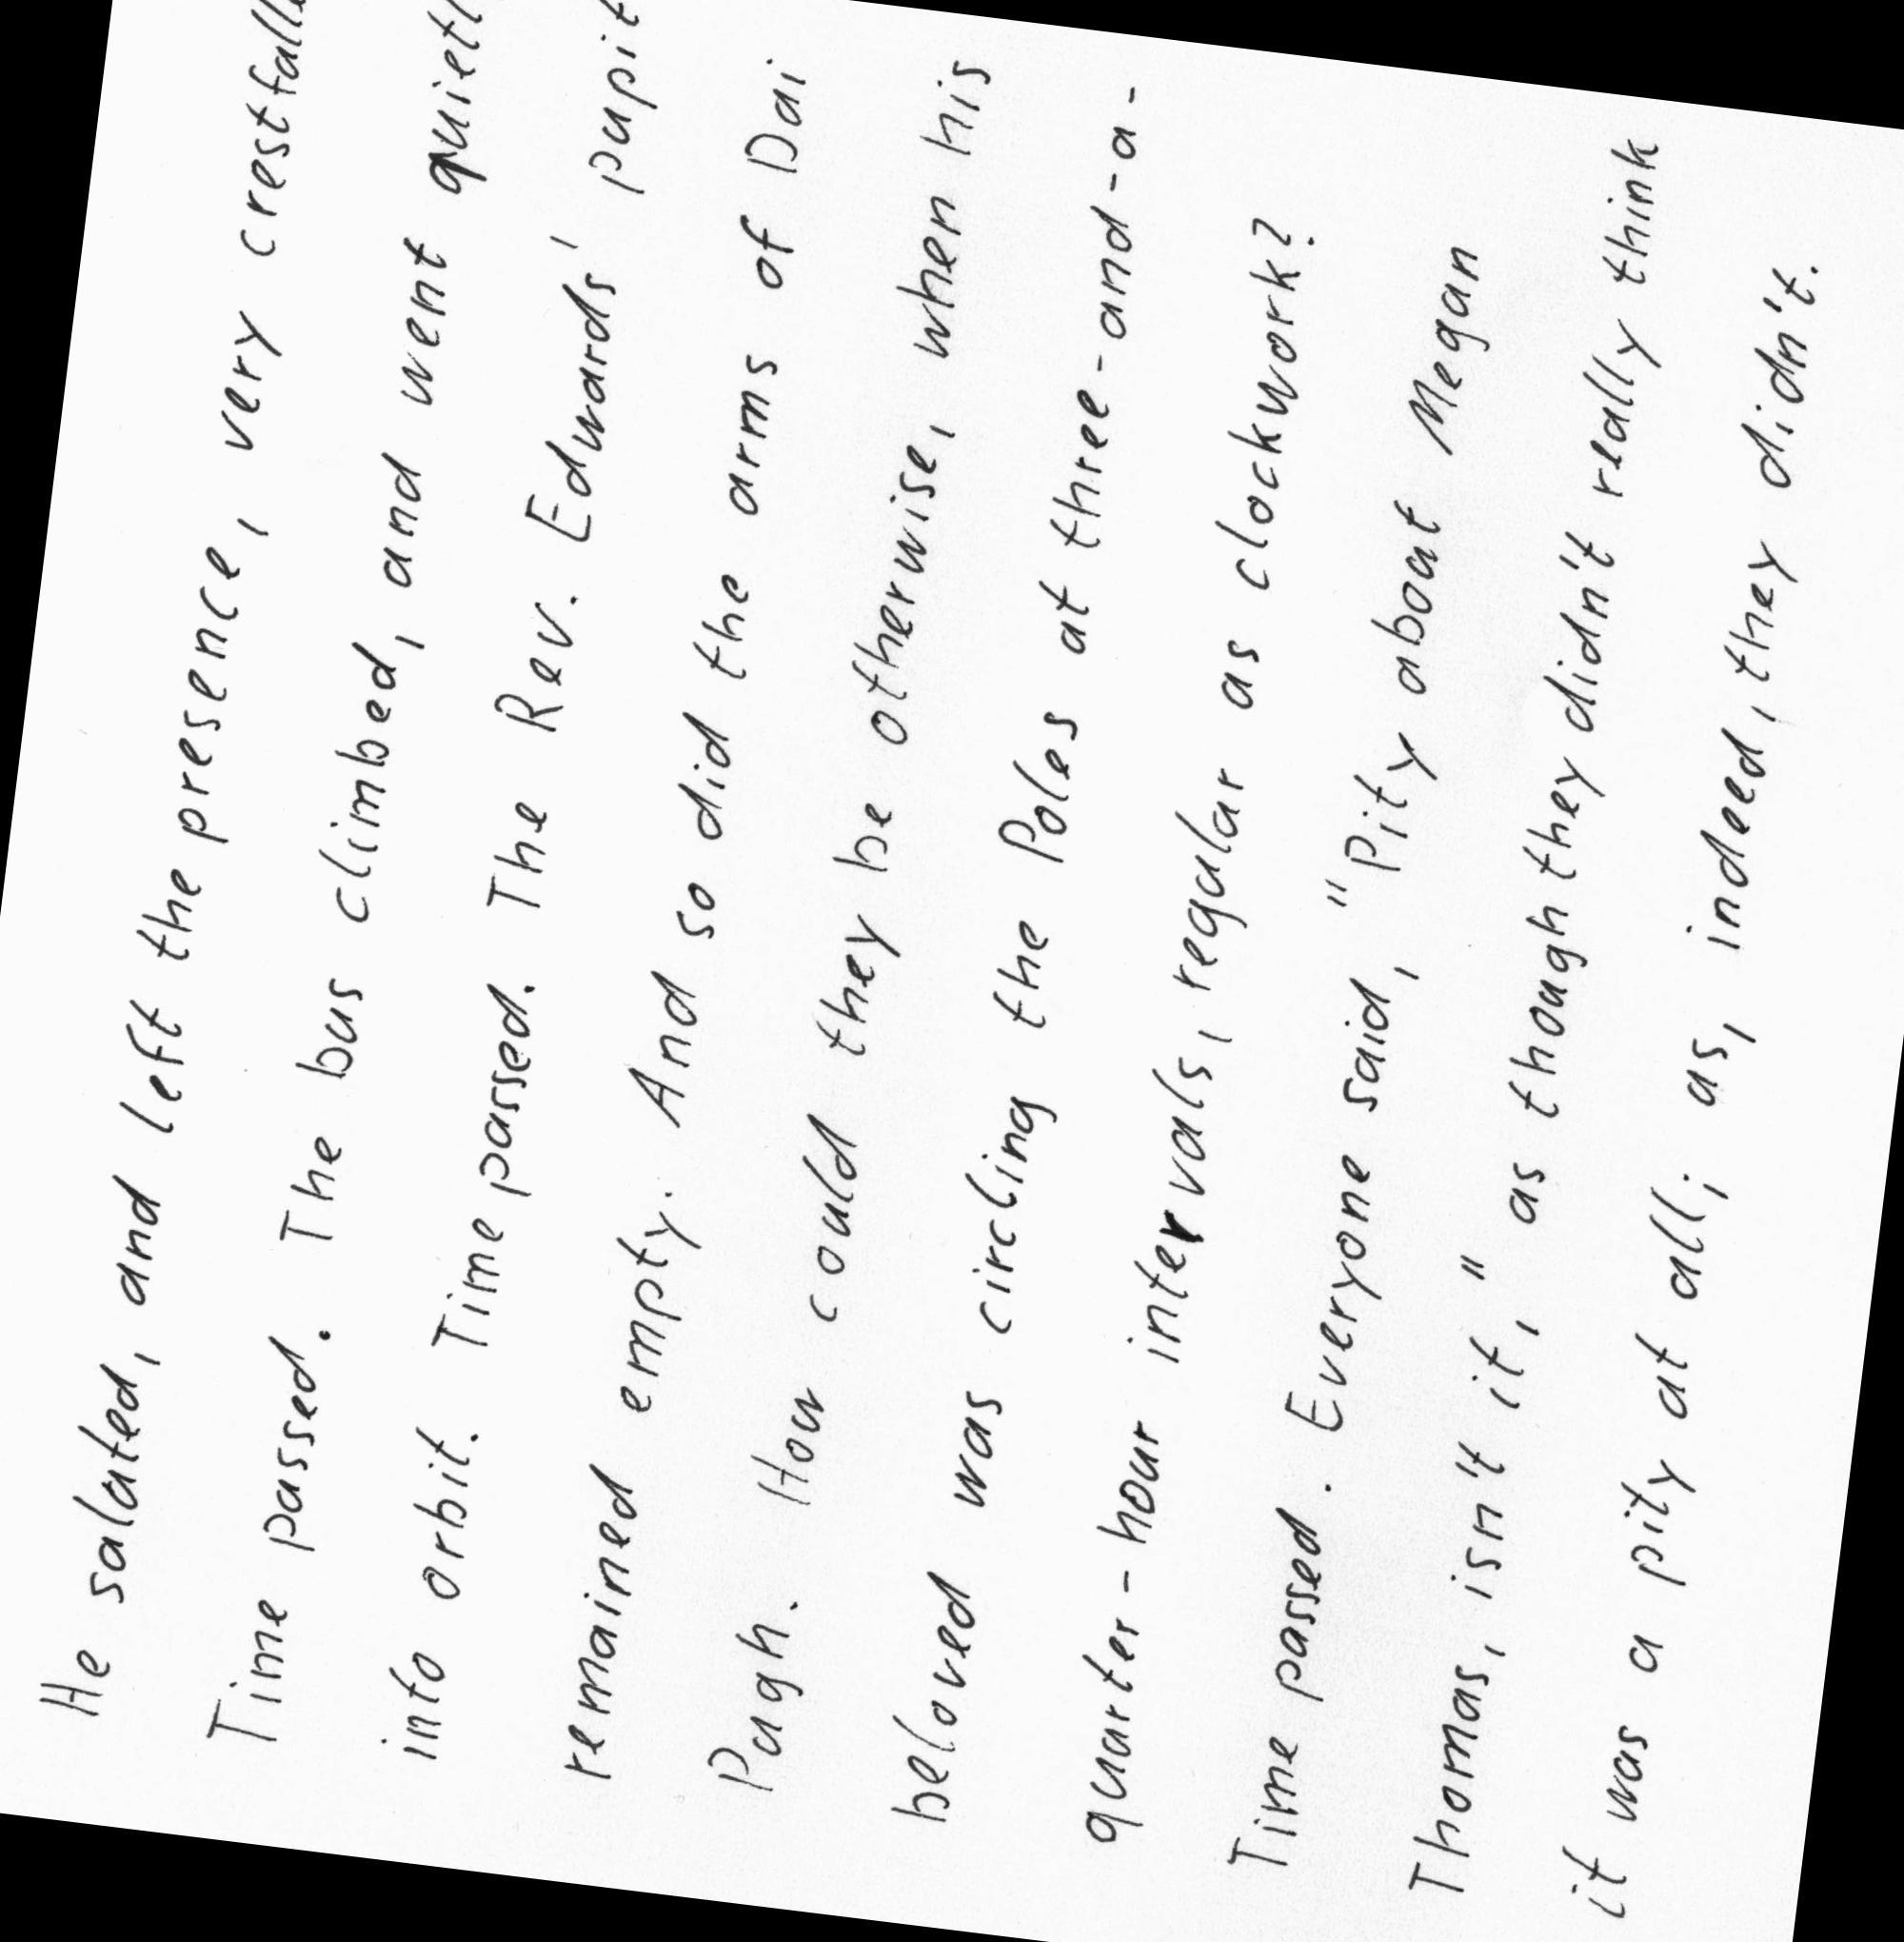 He saluted, and left the presence, very crestfalle
Time passed. The bus climbed, and went quietl
into orbit. Time passed. The Rev. Edwards' pupit
remained empty. And so did the arms of Dai
Pugh. How could they be otherwise, when his
beloved was circling the Poles at three-and-a-
quarter-hour intervals, regular as clockwork?
Time passed. Everyone said, "Pity about Megan
Thomas, isn't it," as though they didn't really think
it was a pity at all; as, indeed, they didn't.